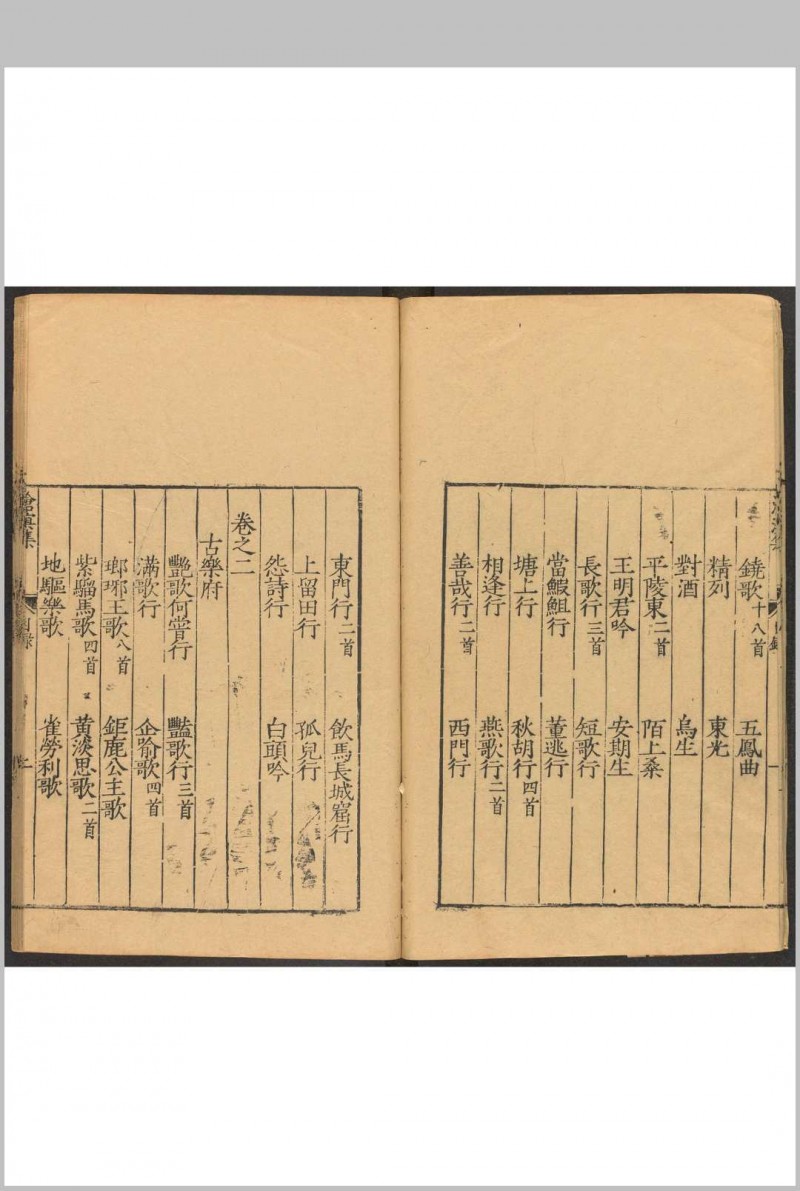 鐃歌十八首 五鳳曲
精列 東光
對酒 烏生
平陵東二首 陌上桑
王明君吟 安期生
長歌行三首 短歌行
當鰕䱇行 董逃行
塘上行 秋胡行四首
相逢行 燕歌行二首
善哉行二首 西門行
東門行二首 飲馬長城窟行
上留田行 孤兒行
怨詩行 白頭吟
卷之二
古樂府
艷歌何嘗行 豔歌行三首
滿歌行 企喻歌四首
瑯琊王歌八首 鉅鹿公主歌
紫騮馬歌四首 黃淡思歌二首
地驅樂歌 雀勞利歌
滄溟集 目録